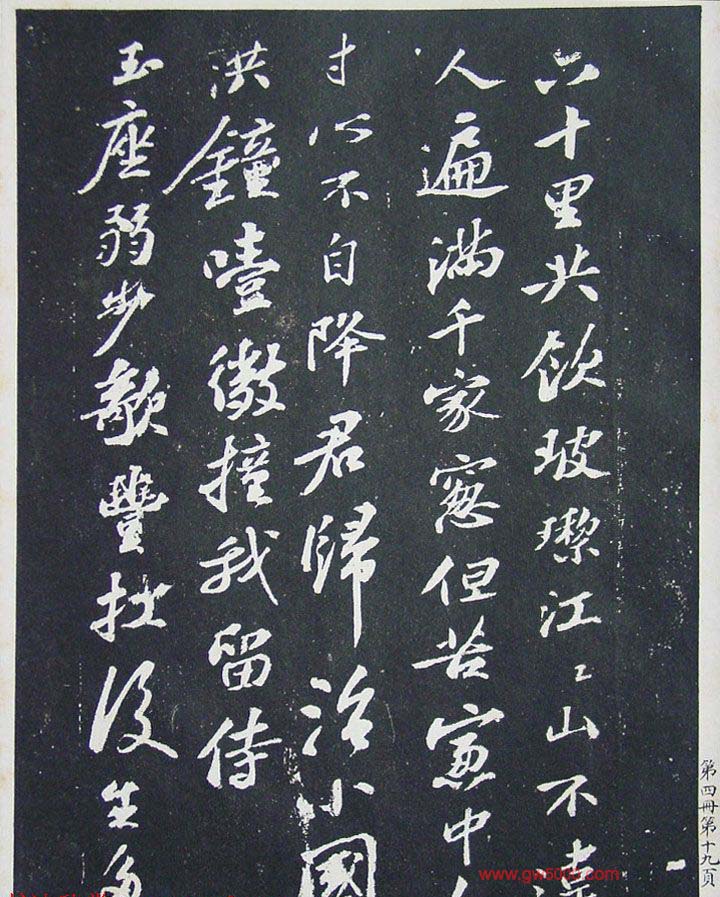 六十里共飲玻瓈江〻山不違
人遍滿千家窻但苦窻中人
寸心不自降君歸治小國
洪鐘噎微撞我留侍
玉座弱步欹豐扛後生多
第四冊第十九頁
www.gw5000.com